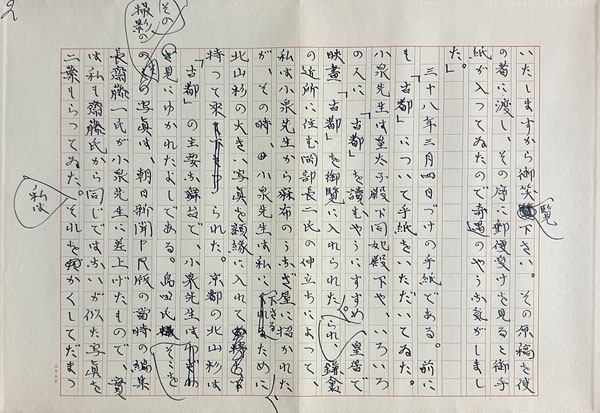 2
いたしますから御笑覧下さい。その原稿を使
の者に渡し、その序に郵便受けを見ると御手
紙が入つてゐたので奇遇のやうな気がしまし
た。」
三十八年三月四日づけの手紙である。前に
も「古都」について手紙をいただいてゐた。
小泉先生は皇太子殿下同妃殿下や、いろいろ
の人に、「古都」を讀むやうにすすめ、「皇居で
映畫「古都」を御覧に入れられた。られ 鎌倉
の近所に住む岡部長二氏の仲立ちによつて、
私は小泉先生から麻布のうなぎ屋に招かれた
が、その時、小泉先生は私に下さるために、
北山杉の大きい写真を額縁に入れて
持つて来られた。京都の北山杉は
「古都」の主要な舞台で、小泉先生は
見にゆかれたよしである。島田氏 そこを
その撮影の写真は、朝日新聞PR版の當時の編集
長齋藤一氏が小泉先生に差上げたもので、實
は私も齋藤氏から同じではないが似た写真を
二葉もらつてゐた。私は それをかくしてだまつ